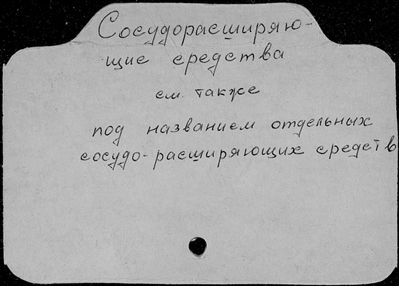 Сосудорасширяю-
щие средства
см. также
под названием отдельных
сосудо-расширяющих средств